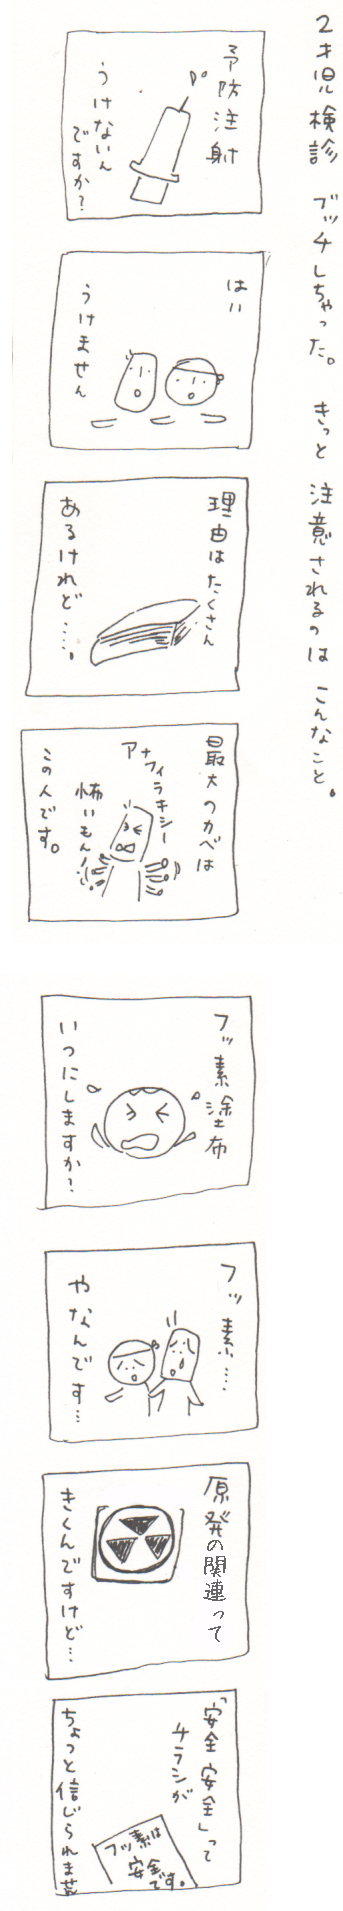 2才児検診 ブッチしちゃった。 きっと 注意されるのは こんなこと。
予防注射
うけないん
ですか?
はい
うけません
理由はたくさん
あるけれど……。
最大のカベは
アナフィラキシー
怖いもん!
この人です。
フッ素塗布
いつにしますか?
フッ素…
やなんです…
原発の関連って
きくんですけど…
「安全安全」って
チラシが
フッ素は
安全
です。
ちょっと信じられま